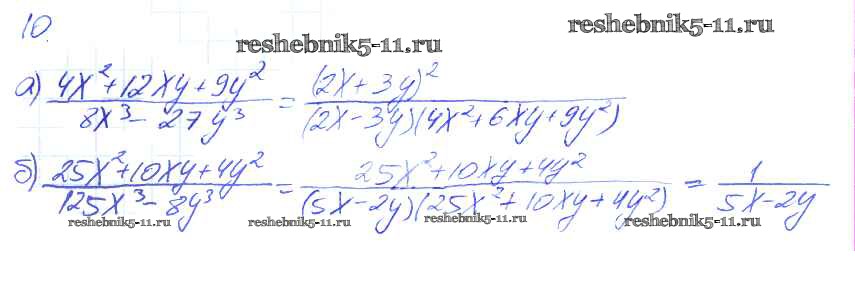 10.
reshebnik5-11.ru
reshebnik5-11.ru
а) (4x²+12xy+9y²)/(8x³-27y³) = (2x+3y)²/((2x-3y)(4x²+6xy+9y²))
б) (25x²+10xy+4y²)/(125x³-8y³) = (25x²+10xy+4y²)/((5x-2y)(25x²+10xy+4y²)) = 1/(5x-2y)
reshebnik5-11.ru reshebnik5-11.ru reshebnik5-11.ru reshebnik5-11.ru